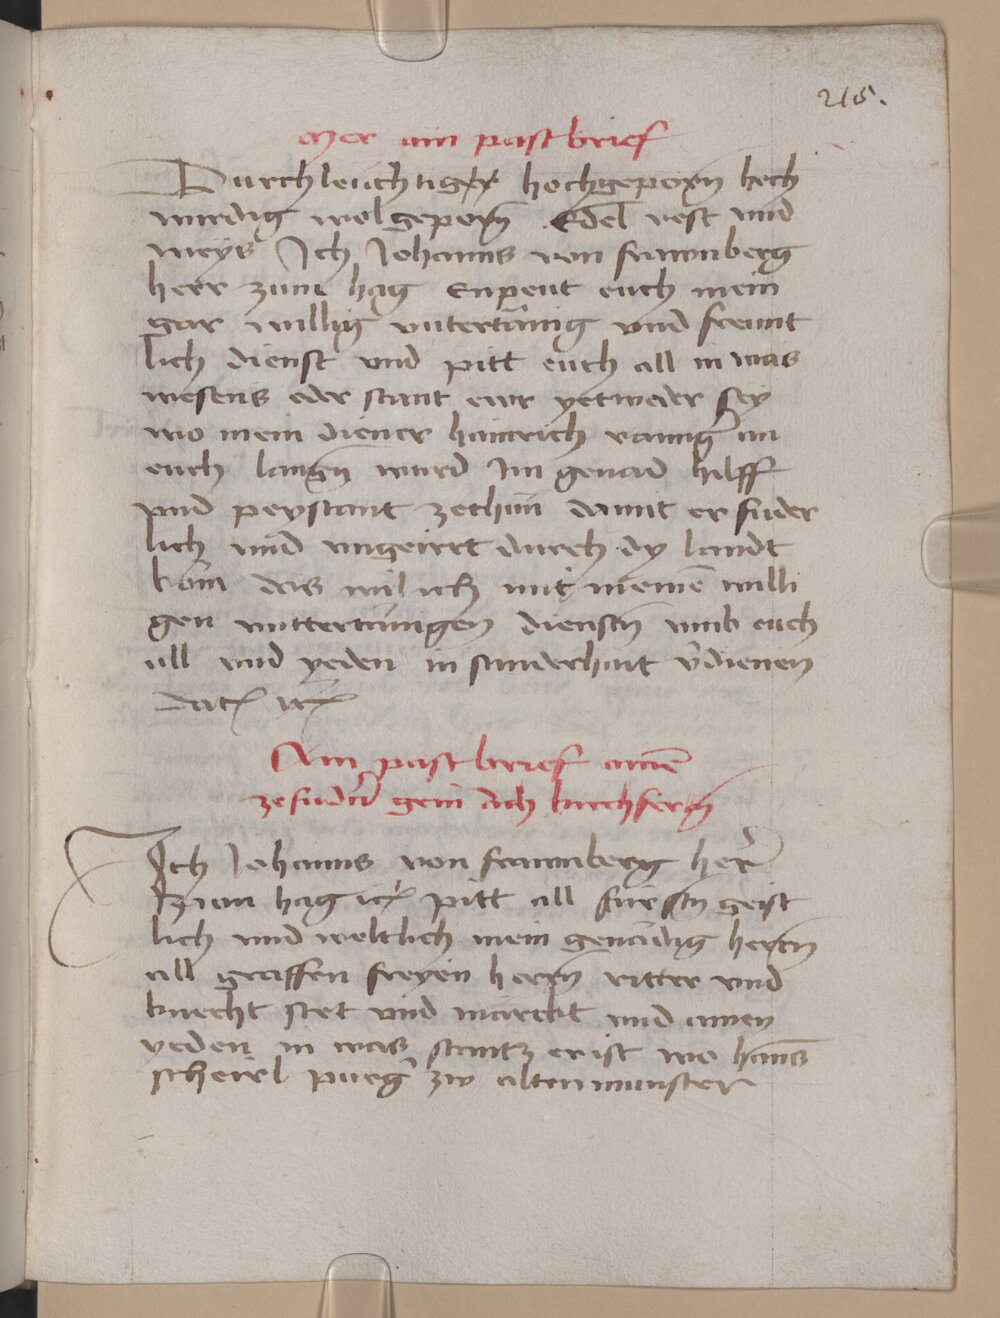 215.
Mer ain pastbrief
Durchleuchtiger hochgeporn hoch
wirdig wolgeporn Edel vest und
weys Ich Johanns von frawnberg
herr zum hag Enpeut euch mein
gar willig untertänig und freunt
lich dienst und pitt euch all in was
wesens oder stant ewr yetweder sey
wo mein diener hainrich an
euch langn wurd Im genad hilff
und peystant zethun damit er fuder
lich und ungeirrt durch dy landt
kom das wil ich mit meinē willi
gen untertänigen dienstn umb euch
all und yeden in sunderhait v̄dienen
Datū ꝛc
Ain pastbrief ainē
zefudrn gein ach kirchfertn
Ich Johanns von frawnberg herr
zum hag ꝛc pitt all fürstn geist
lich und weltlich mein genädig herrn
all graffen freyen herrn ritter und
knecht stet und märckt und ainen
yeden in was stantz er ist wo hanns
scheirl purgr zw altenmunster